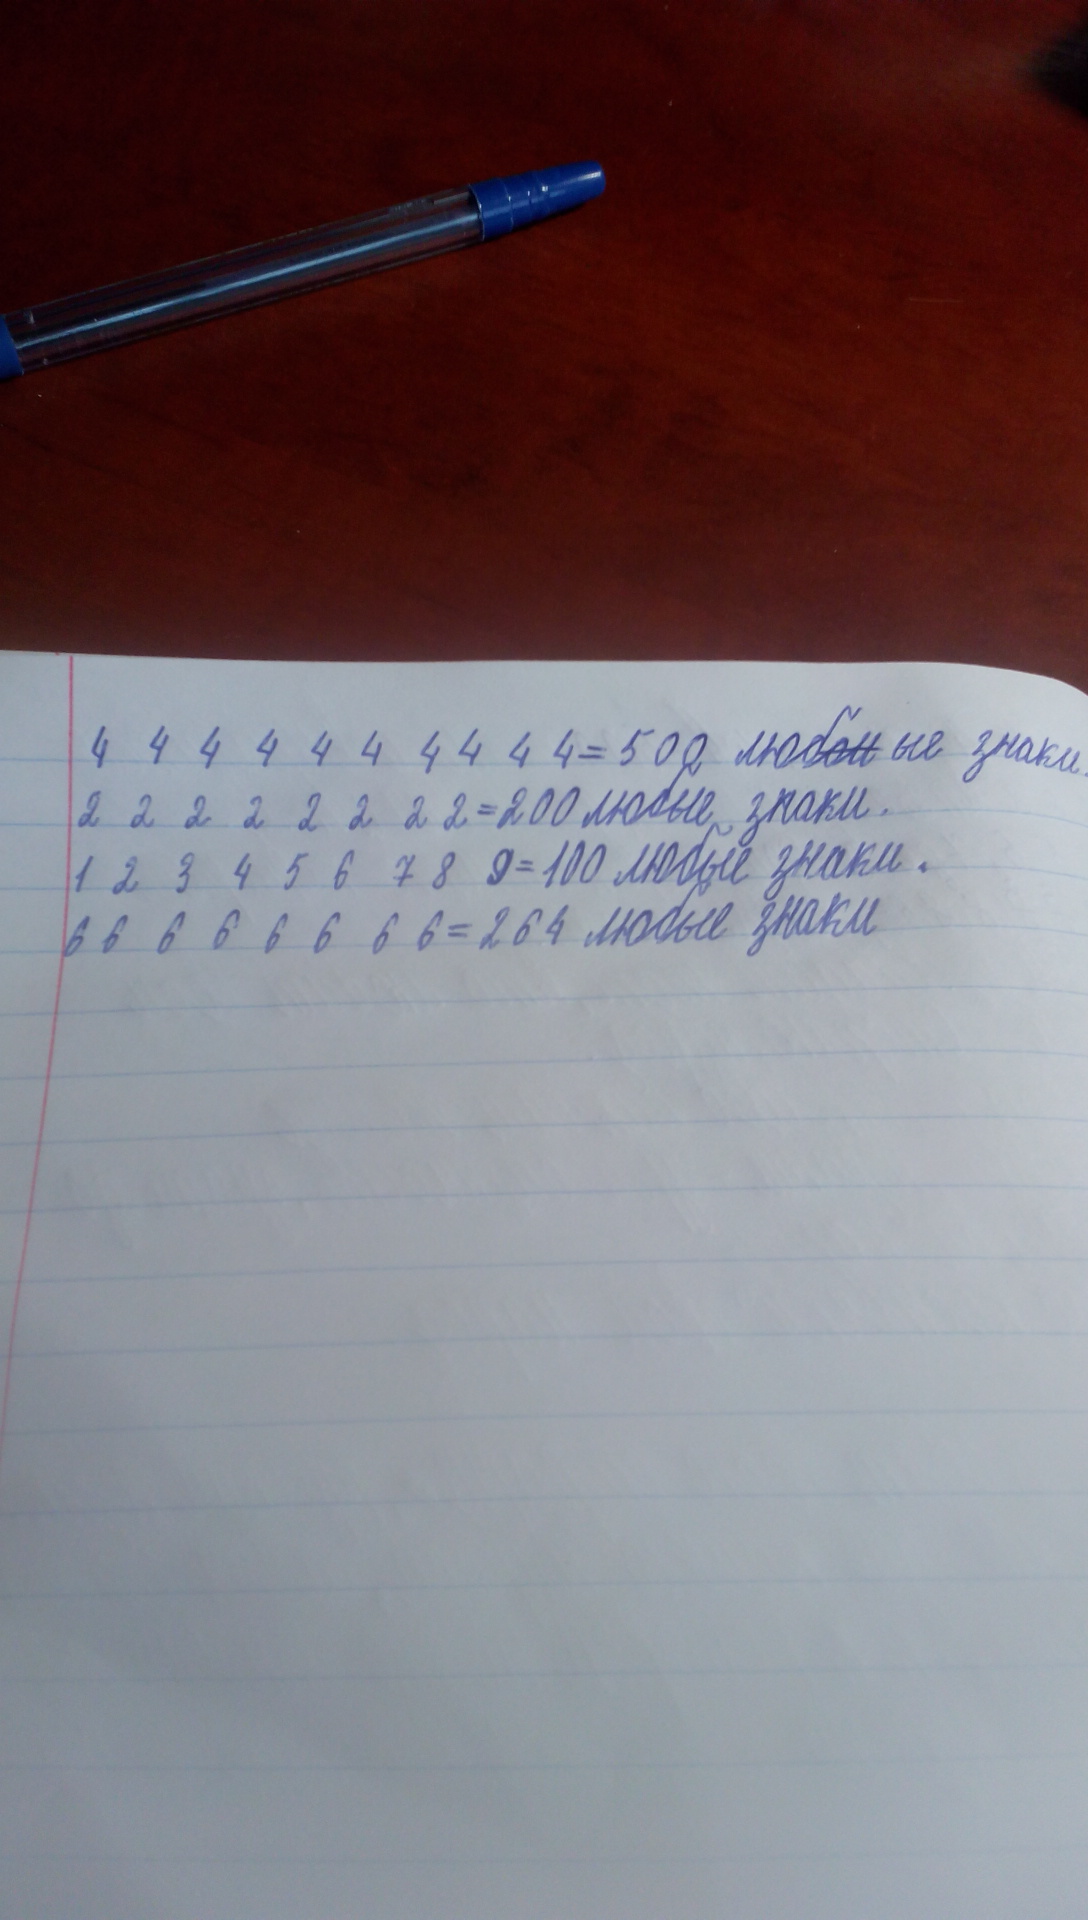 4 4 4 4 4 4 4 4 4 4=500 любые знаки.
2 2 2 2 2 2 2 2=200 любые знаки.
1 2 3 4 5 6 7 8 9=100 любые знаки.
6 6 6 6 6 6 6 6=264 любые знаки